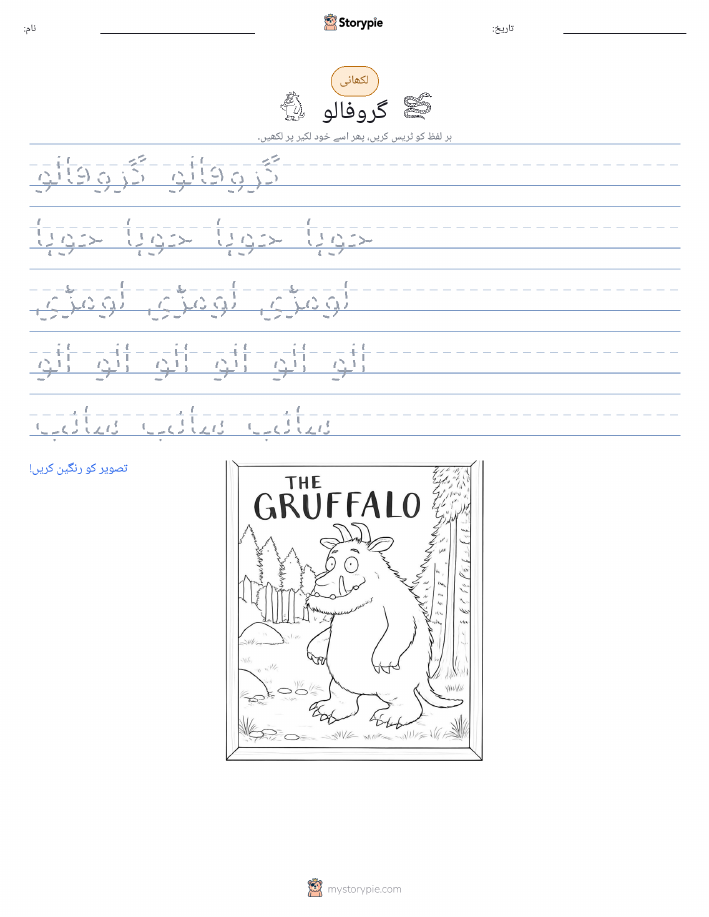 Storypie
نام:
تاریخ:
لکھائی
گروفالو
ہر لفظ کو ٹریس کریں، پھر اسے خود لکیر پر لکھیں۔
گروفالو گروفالو
چوہا چوہا چوہا چوہا
لومڑی لومڑی لومڑی
الو الو الو الو الو الو
سانپ سانپ سانپ
تصویر کو رنگین کریں!
THE
GRUFFALO
mystorypie.com